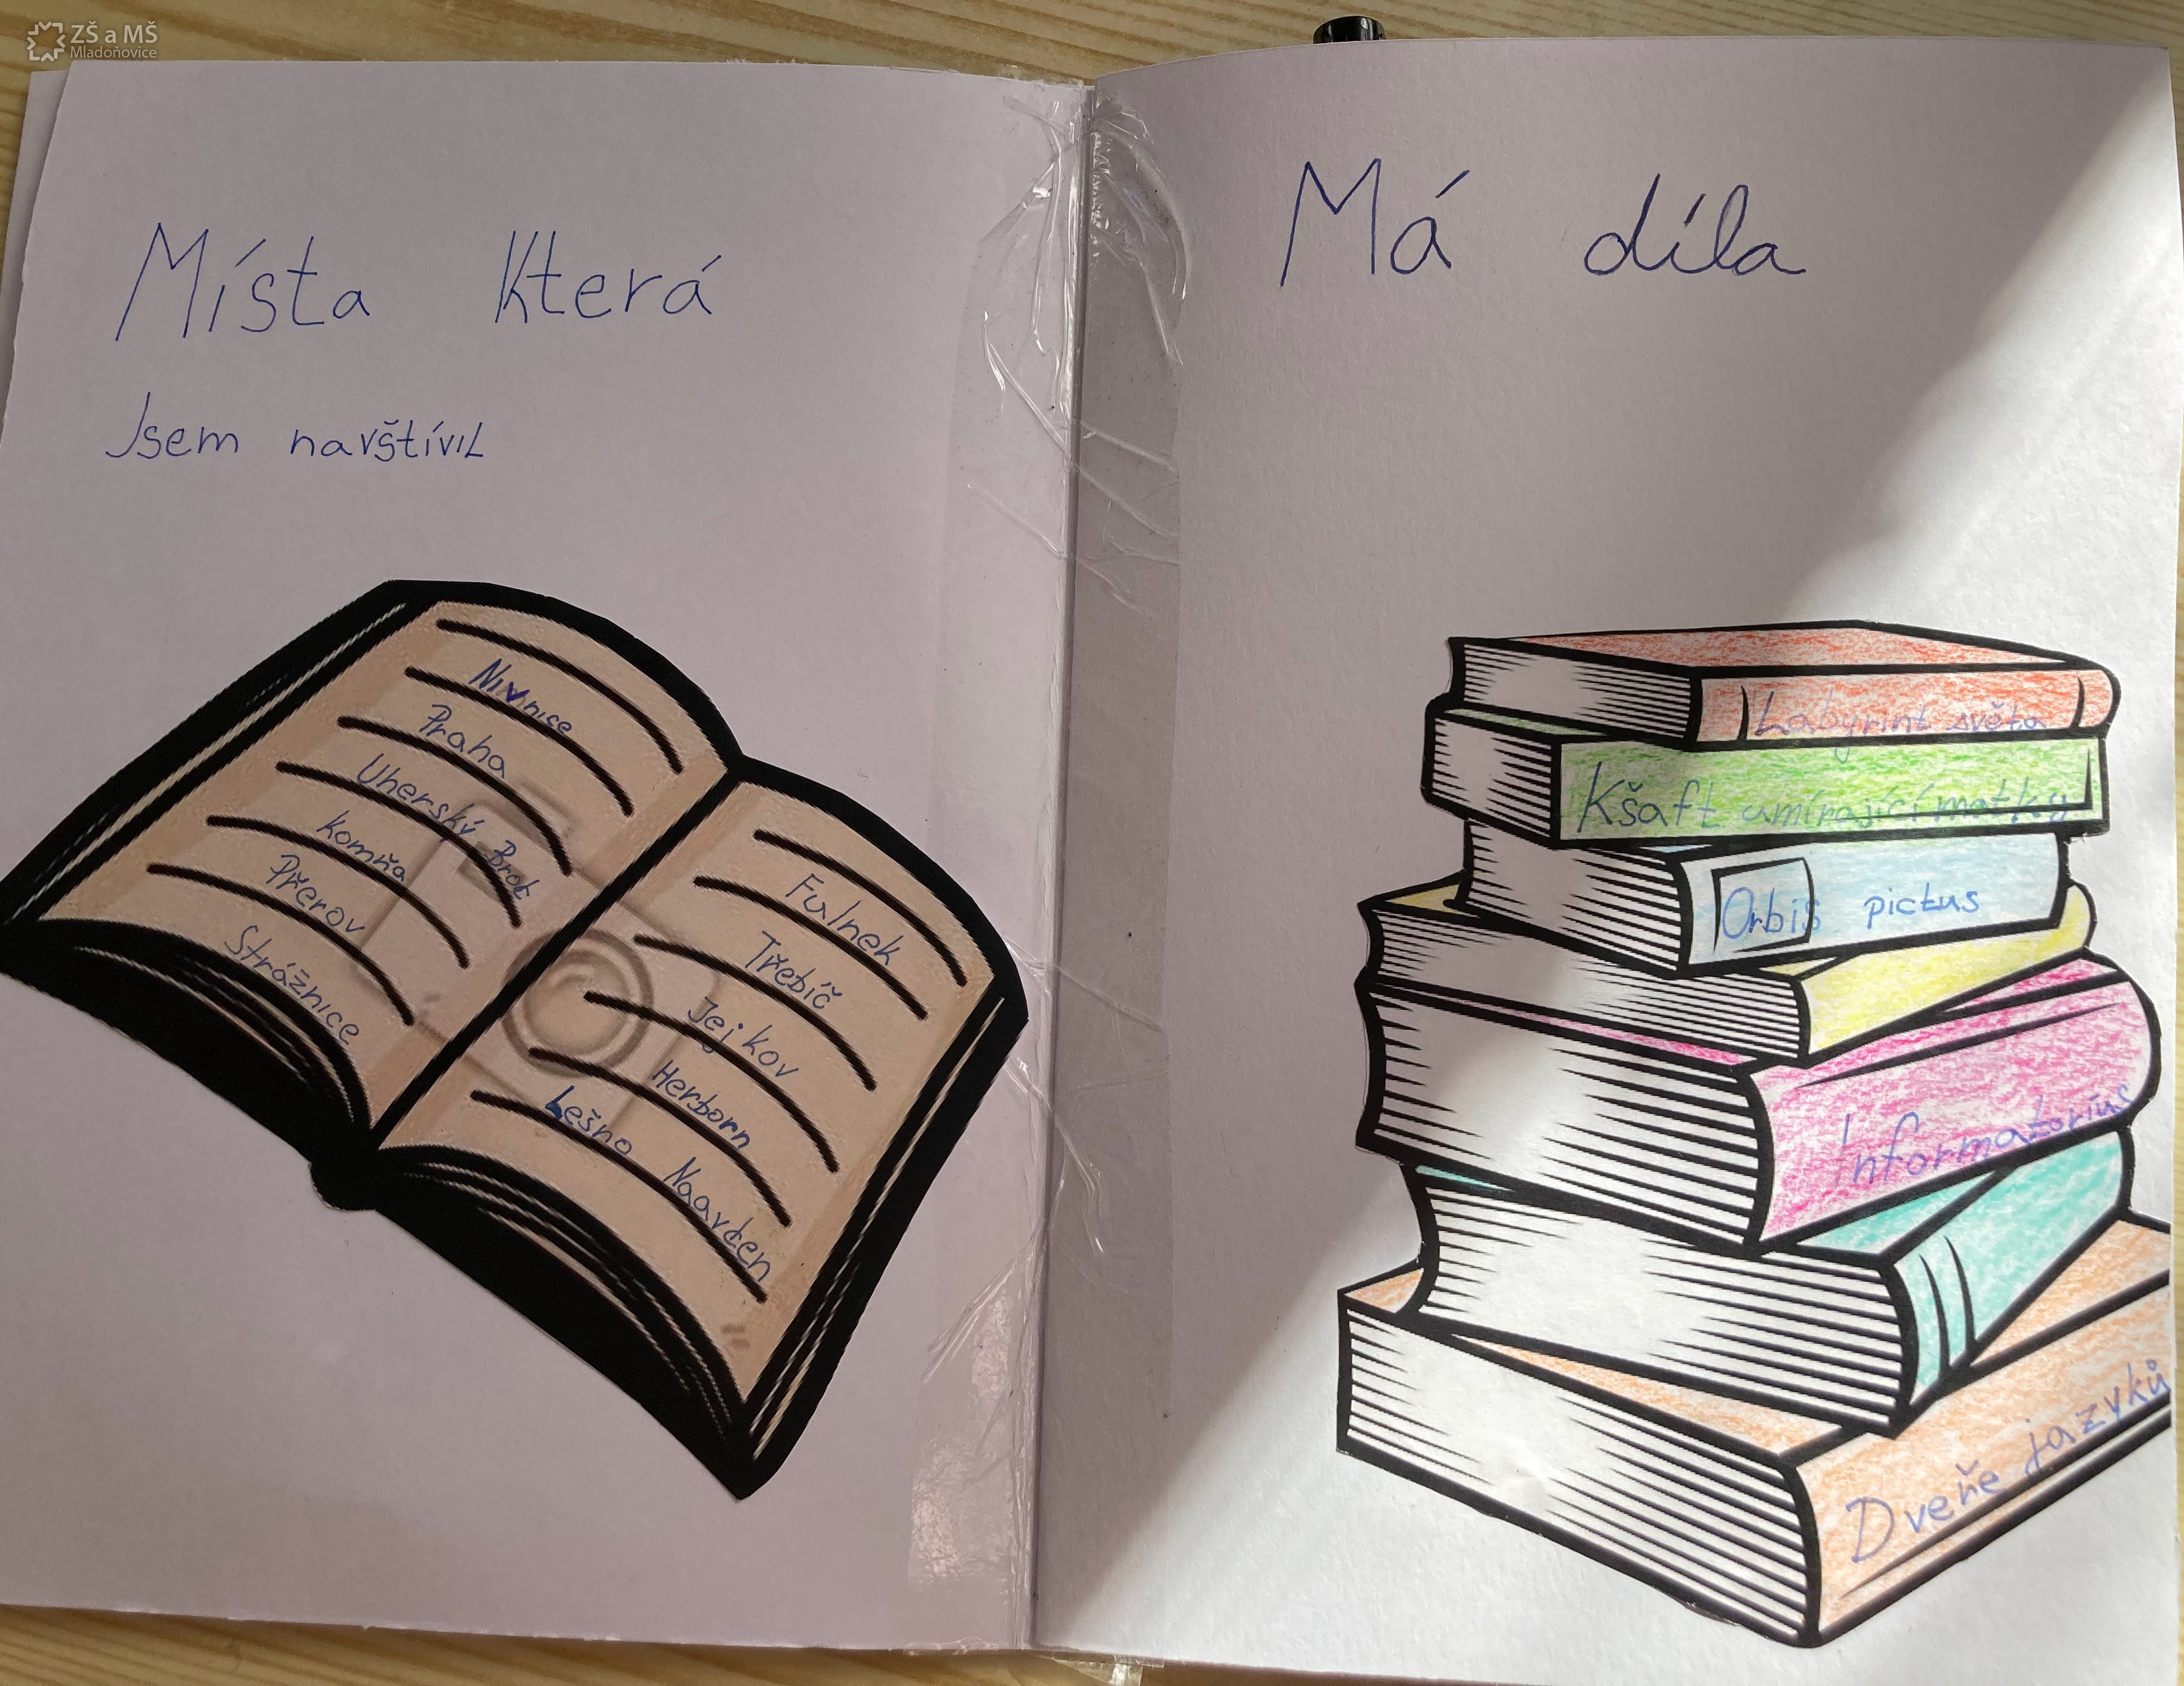 ZŠ a MŠ
Mladoňovice
Místa Která
Jsem navštívil
Nivnice
Praha
Uherský Brod
Komňa
Přerov
Strážnice
Fulnek
Třebíč
Jejkov
Herborn
Lešno Naarden
Má díla
Labyrint světa
Kšaft umírající matky
Orbis pictus
Informatorius
Dveře jazyků